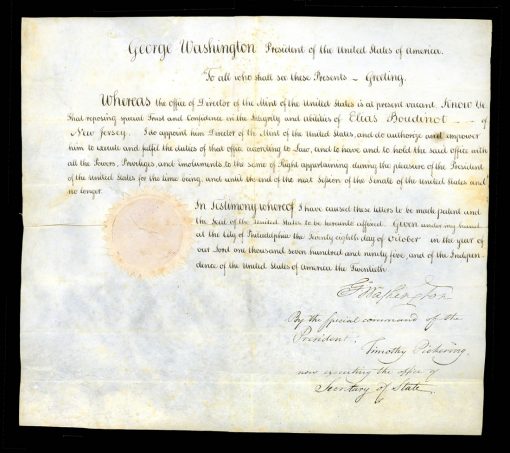 George Washington President of the United States of America.
To all who shall see these Presents – Greeting.
Whereas the office of Director of the Mint of the United States is at present vacant. Know Ye
that reposing special Trust and Confidence in the Integrity and abilities of Elias Boudinot — of
New Jersey. I do appoint him Director of the Mint of the United States, and do authorize and empower
him to execute and fulfil the duties of that office according to Law, and to have and to hold the said office with
all the Powers, Privileges, and Emoluments to the same of Right appertaining during the pleasure of the President
of the United States for the time being, and until the end of the next Session of the Senate of the United States and
no longer.
In Testimony whereof I have caused these letters to be made patent and
the Seal of the United States to be hereunto affixed. Given under my hand
at the City of Philadelphia the Twenty eighth day of October in the year of
our Lord one thousand seven hundred and ninety five, and of the Indepen-
dence of the United States of America the Twentieth.
G Washington
By the special command of the
President;
Timothy Pickering,
now executing the office of
Secretary of State.